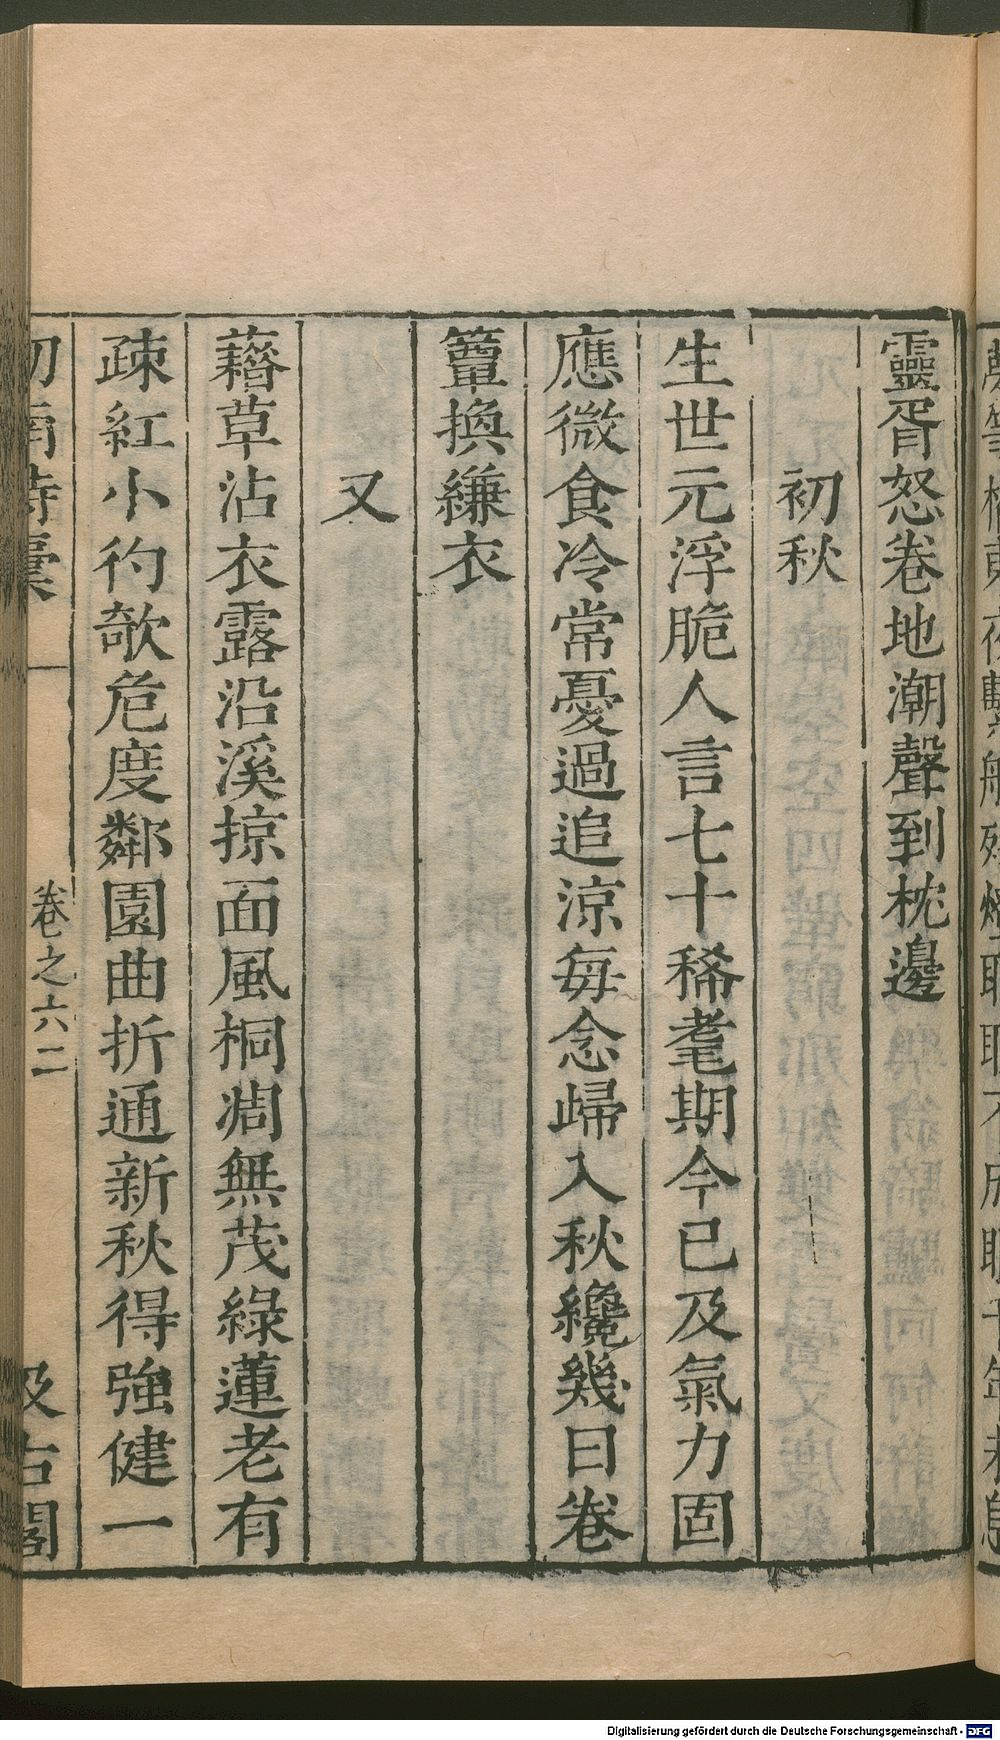 靈胥怒卷地潮聲到枕邊
初秋
生世元浮脆人言七十稀耄期今已及氣力固
應微食冷常憂過追涼每念歸入秋纔幾日卷
簟換縑衣
又
藉草沾衣露沿溪掠面風桐凋無茂綠蓮老有
疎紅小彴欹危度鄰園曲折通新秋得強健一
卷之六 二
汲古閣
Digitalisierung gefördert durch die Deutsche Forschungsgemeinschaft - DFG